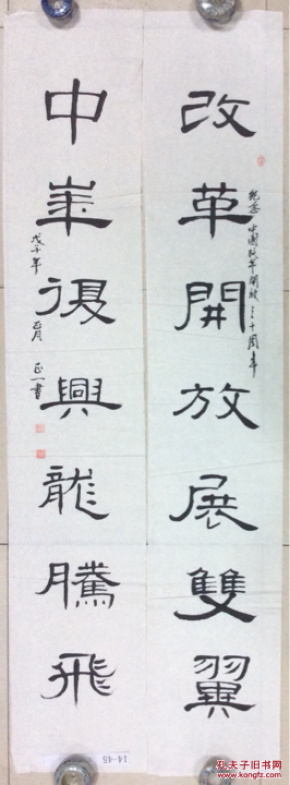 改革開放展雙翼
紀念中國改革開放三十周年
中華復興龍騰飛
戊子年正月
正一書
14-45
孔夫子旧书网